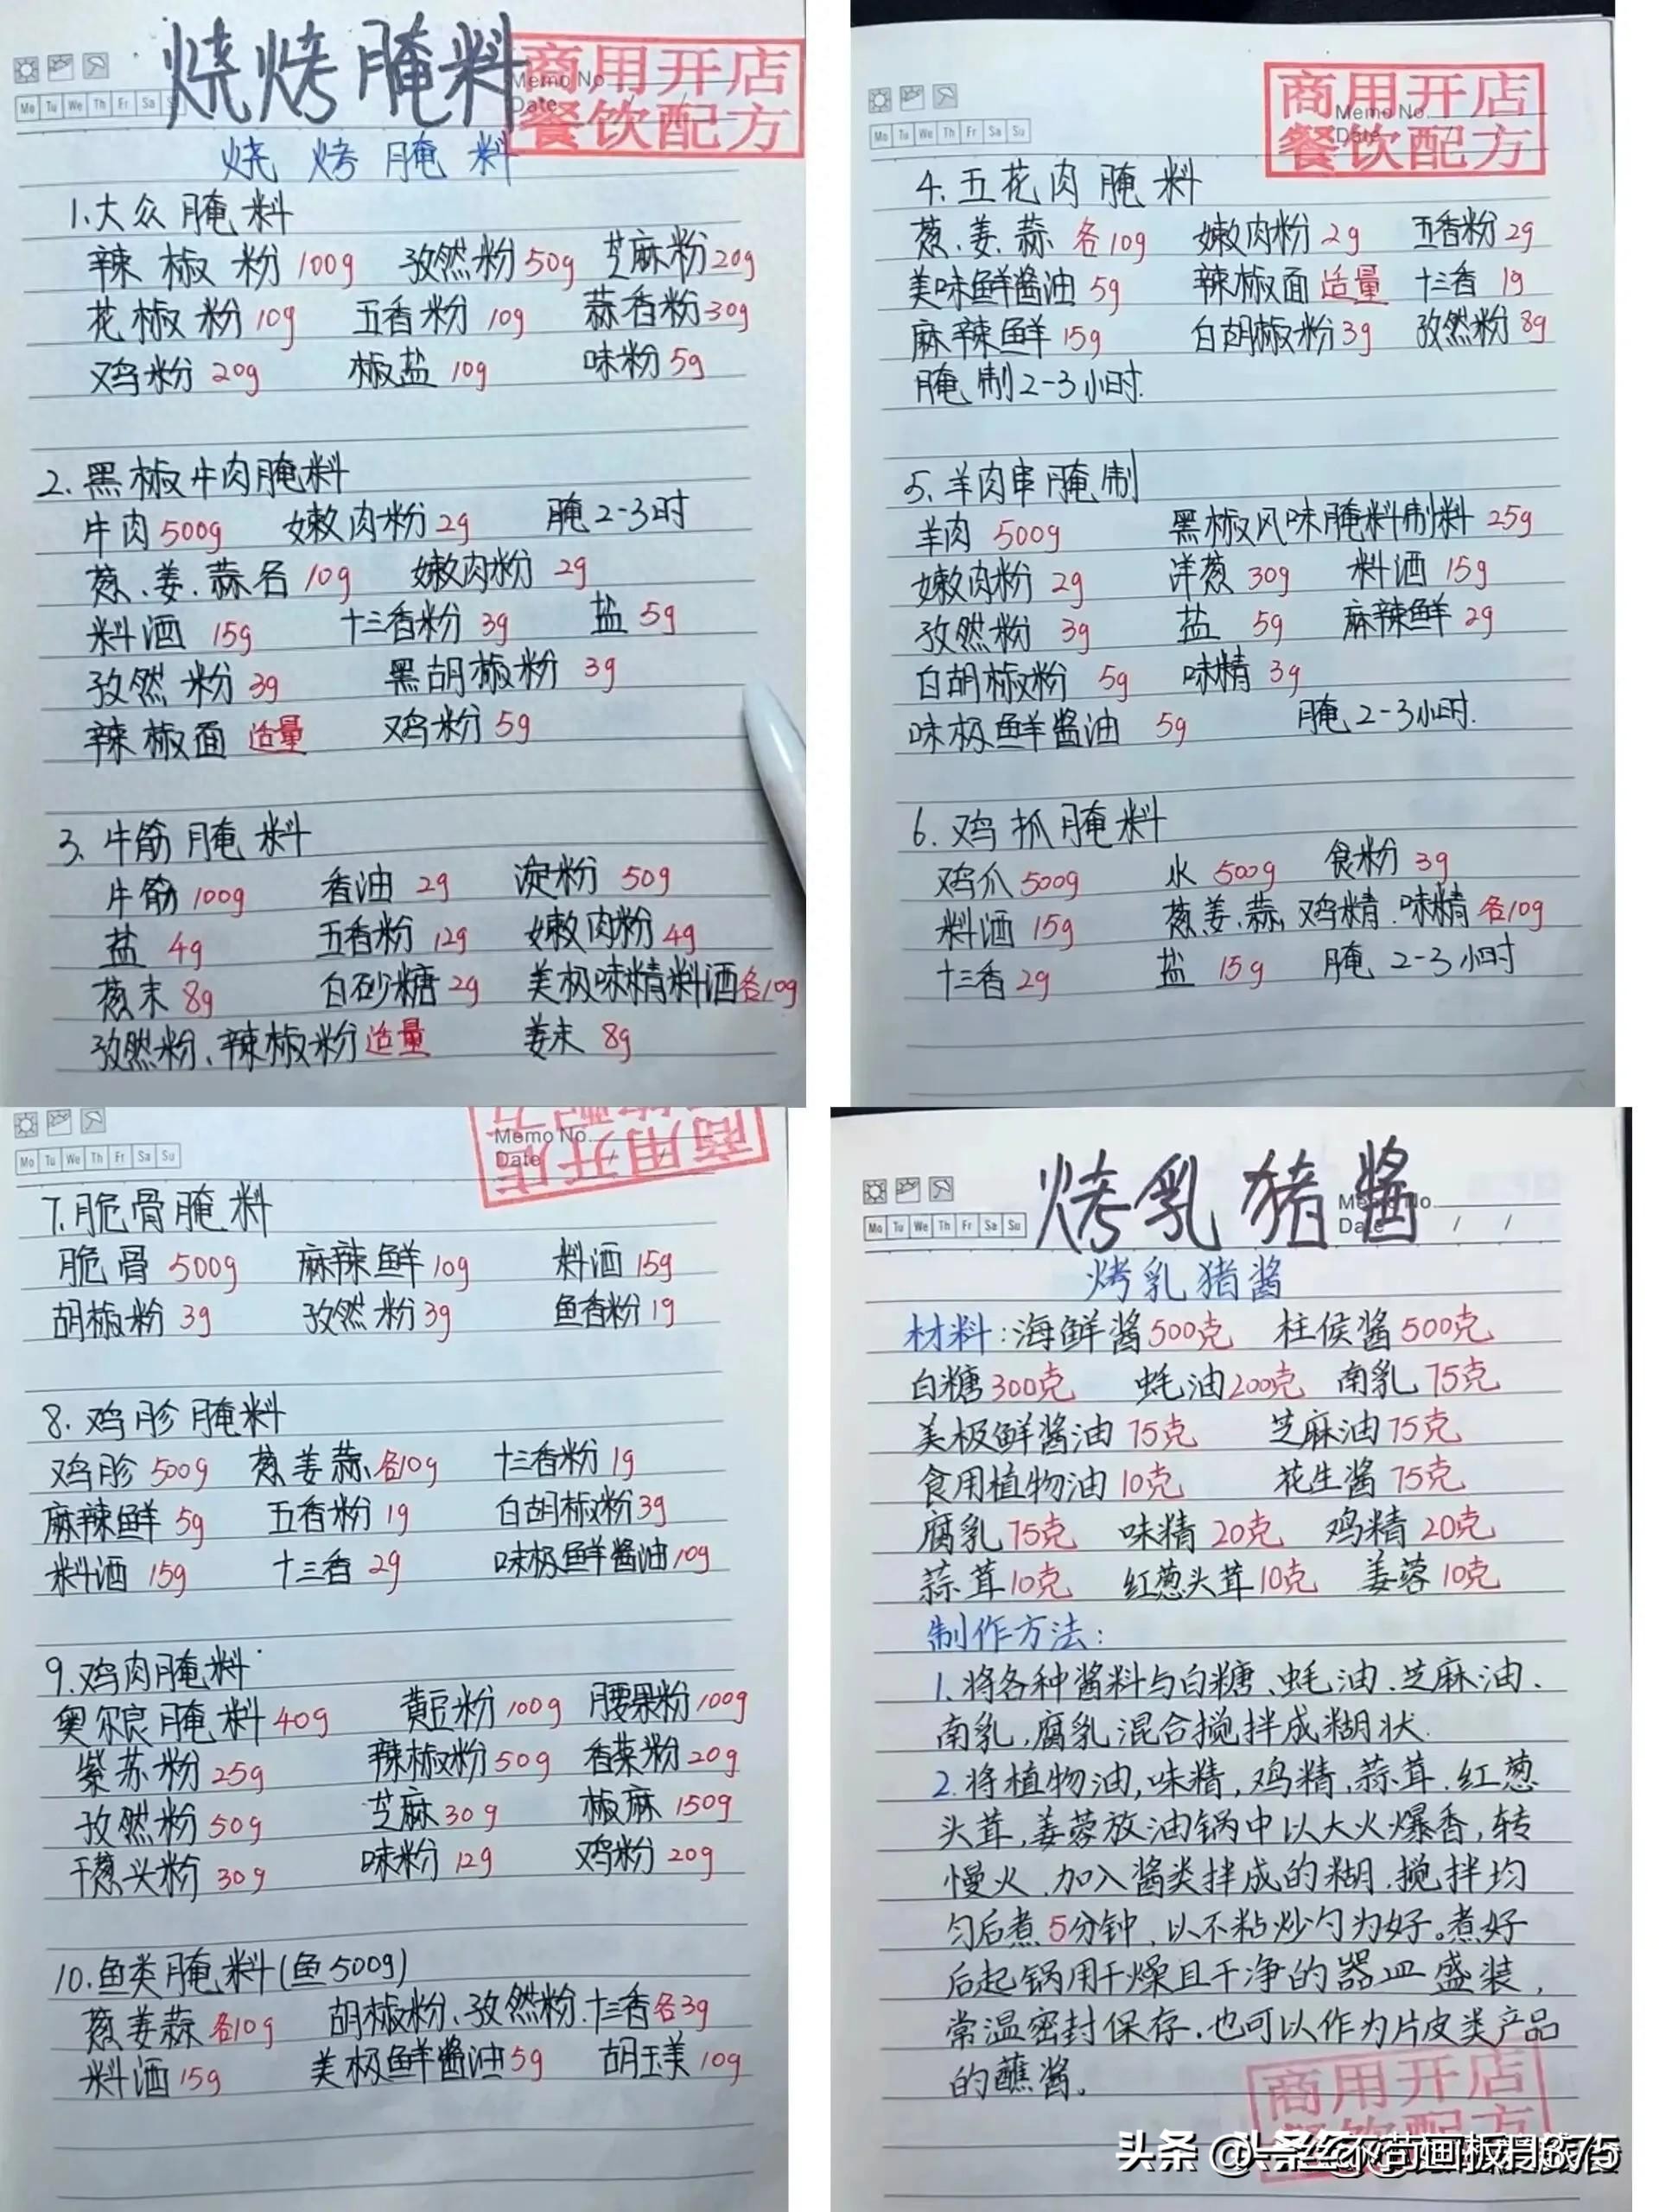 烧烤腌料
商用开店
餐饮配方
Memo No.
Date / /
Mo Tu We Th Fr Sa
烧烤腌料
1.大众腌料
辣椒粉100g 孜然粉50g 芝麻粉20g
花椒粉10g 五香粉10g 蒜香粉30g
鸡粉20g 椒盐10g 味粉5g
2.黑椒牛肉腌料
牛肉500g 嫩肉粉2g 腌2-3时
葱、姜、蒜各10g 嫩肉粉2g
料酒15g 十三香粉3g 盐5g
孜然粉3g 黑胡椒粉3g
辣椒面适量 鸡粉5g
3.牛筋腌料
牛筋100g 香油2g 淀粉50g
盐4g 五香粉12g 嫩肉粉4g
葱末8g 白砂糖2g 美极味精料酒各10g
孜然粉、辣椒粉适量 姜末8g
商用开店
餐饮配方
Memo No.
Date / /
Mo Tu We Th Fr Sa Su
4.五花肉腌料
葱、姜、蒜各10g 嫩肉粉2g 五香粉2g
美味鲜酱油5g 辣椒面适量 十三香1g
麻辣鲜15g 白胡椒粉3g 孜然粉8g
腌制2-3小时.
5.羊肉串腌制
羊肉500g 黑椒风味腌料制料25g
嫩肉粉2g 洋葱30g 料酒15g
孜然粉3g 盐5g 麻辣鲜2g
白胡椒粉5g 味精3g
味极鲜酱油5g 腌2-3小时.
6.鸡抓腌料
鸡爪500g 水500g 食粉3g
料酒15g 葱姜、蒜,鸡精.味精各10g
十三香2g 盐15g 腌2-3小时
商用开店
Memo No.
Date / /
Mo Tu We Th Fr Sa Su
7.脆骨腌料
脆骨500g 麻辣鲜10g 料酒15g
胡椒粉3g 孜然粉3g 鱼香粉1g
8.鸡胗腌料
鸡胗500g 葱姜蒜各10g 十三香粉1g
麻辣鲜5g 五香粉1g 白胡椒粉3g
料酒15g 十三香2g 味极鲜酱油10g
9.鸡肉腌料
奥尔良腌料40g 黄豆粉100g 腰果粉100g
紫苏粉25g 辣椒粉50g 香菜粉20g
孜然粉50g 芝麻30g 椒麻150g
干葱头粉30g 味粉12g 鸡粉20g
10.鱼类腌料(鱼500g)
葱姜蒜各10g 胡椒粉、孜然粉.十三香各3g
料酒15g 美极鲜酱油5g 胡玉美10g
烤乳猪酱
Memo No.
Date / /
Mo Tu We Th Fr Sa Su
烤乳猪酱
材料:海鲜酱500克 柱侯酱500克
白糖300克 蚝油200克 南乳75克
美极鲜酱油75克 芝麻油75克
食用植物油10克 花生酱75克
腐乳75克 味精20克 鸡精20克
蒜茸10克 红葱头茸10克 姜蓉10克
制作方法:
1.将各种酱料与白糖、蚝油.芝麻油、
南乳,腐乳混合搅拌成糊状.
2.将植物油,味精,鸡精,蒜茸.红葱
头茸,姜蓉放油锅中以大火爆香,转
慢火、加入酱类拌成的糊.搅拌均
匀后煮5分钟、以不粘炒勺为好。煮好
后起锅用干燥且干净的器皿盛装,
常温密封保存.也可以作为片皮类产品
的蘸酱。
商用开店
餐饮配方
头条